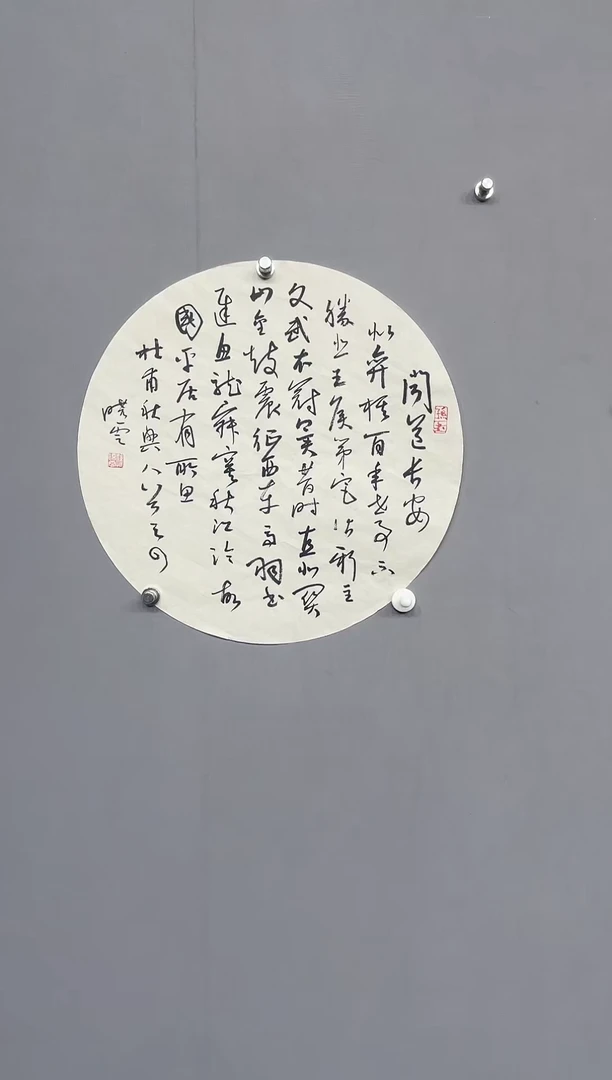 聞道长安
似弈棋百年世事不
勝悲王侯第宅皆新主
文武衣冠異昔时直北関
山金鼓震征西车马羽书
遲鱼龙寂寞秋江冷故
國平居有所思
杜甫秋興八首之四